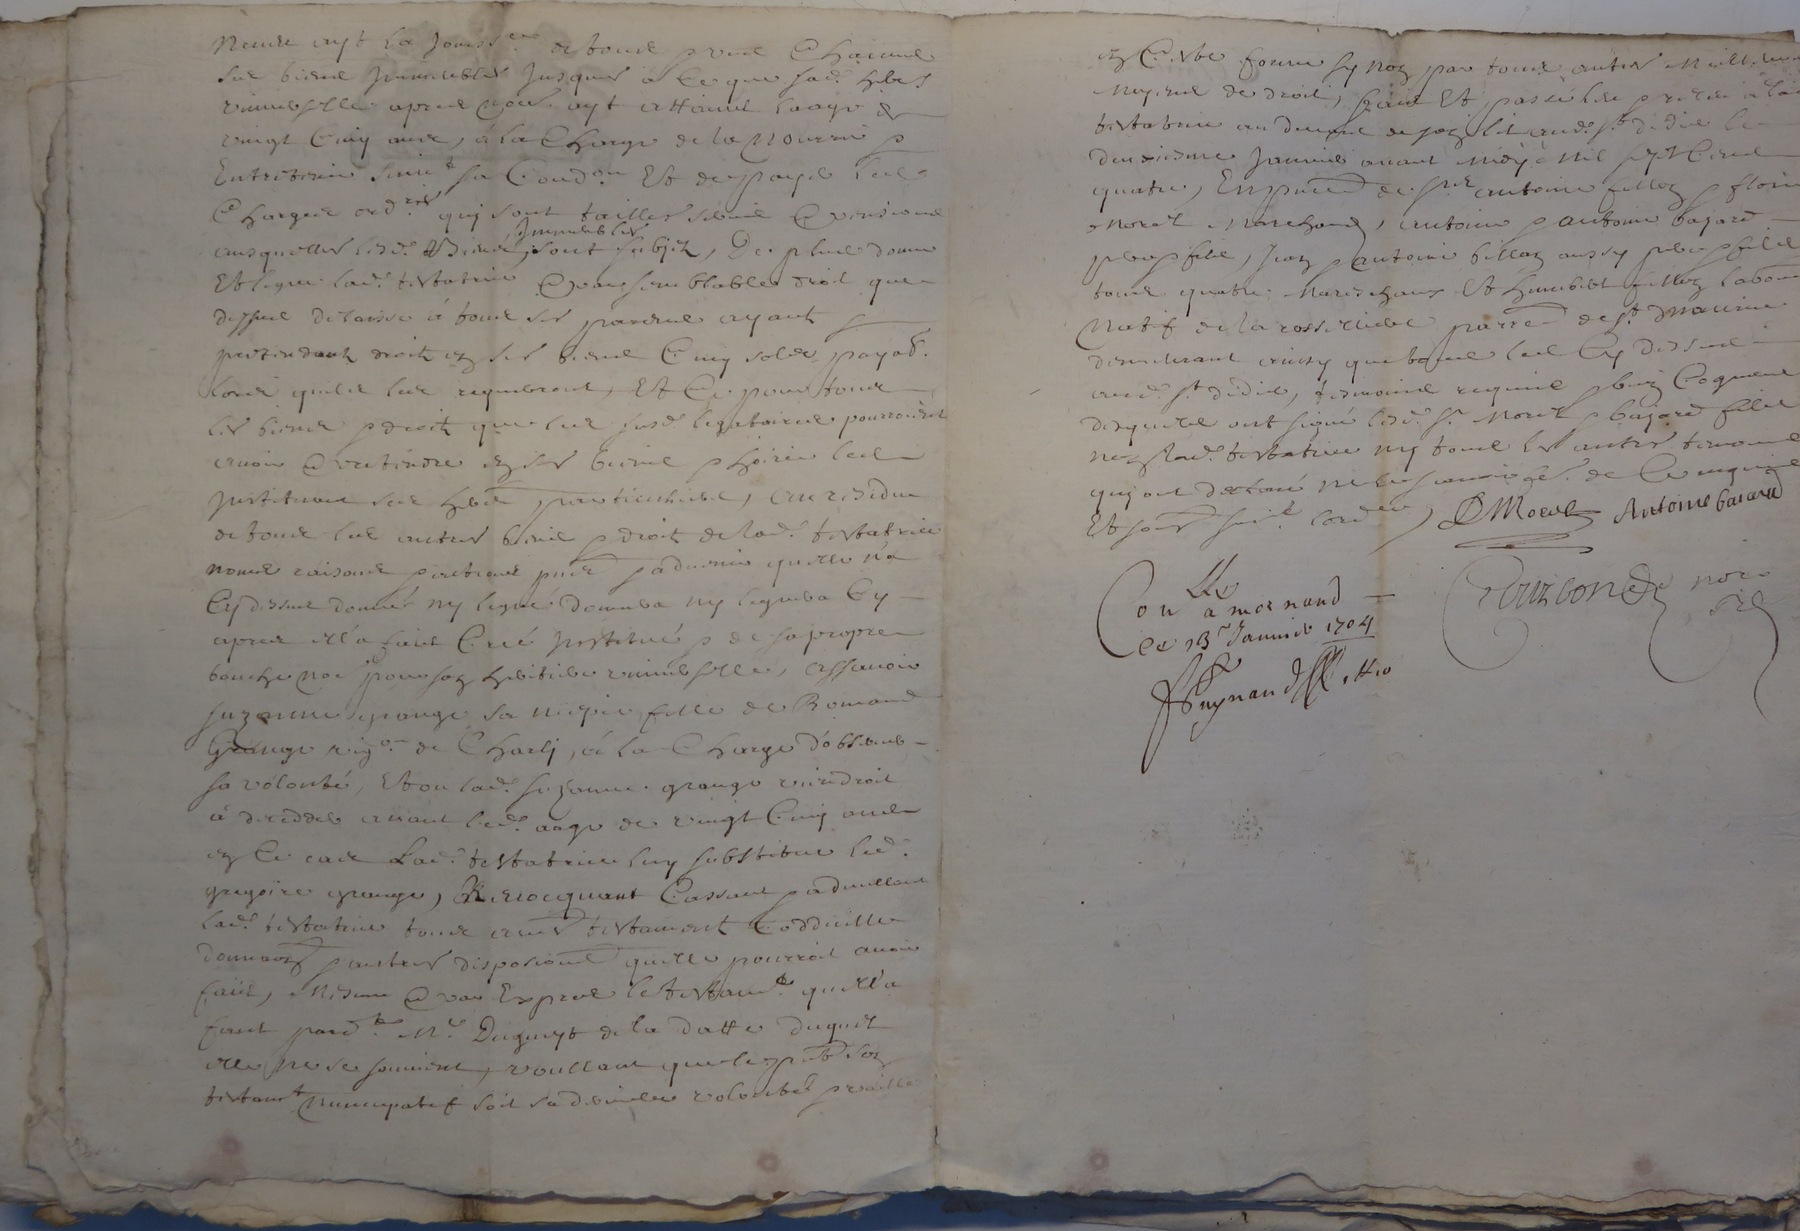 neveu ayt la jouiss.ce de tous & un Chacun
ses biens Immeubles Jusques à ce que sad. h.re
universelle apres nom.e ayt atteint laage de
vingt Cinq ans, à la Charge de la nourrir &
Entretenir suiv.t sa Cond.on Et de payer les
Charges ord.res qui sont tailles servis & pensions
ausquelles lesd. Biens Immeubles sont subjets, De plus donne
Et legue lad. testatrice & par semblable droit que
dessus delaisse à tous ses parens ayants &
pretendants droit en ses biens Cinq sols payab.
lors quils les requerront, Et Ce pour tous
les biens & droits que les susd. legataires pourroient
avoir & pretendre en ses biens & hoirie les
Instituant ses her.s particuliers, au residu
de tous les autres biens & droits de lad. testatrice
noms raisons & actions pnts & advenir quelle na
Cy dessus donné ny legué donnera ny leguera Cy
apres elle a fait Creé Institué & de sa propre
bouche nommé pour son heritiere universelle, assavoir
suzanne grange sa niepce fille de Romand
Grange vig.on de Charly, à la Charge dobserver
sa volonté, Et ou lad. suzanne grange viendroit
à deceddes avant led. aage de vingt Cinq ans
en Ce cas Lad. testatrice luy substitue led.
gregoire grange, Revocquant Cassant & adnullant
lad. testatrice tous autres testament Coddicille
donnaons & autres disposicions quelle pourroit avoir
fait, Mesme & par Expres le testam.t quella
fait pard.t M.e Duguyt de la datte duquel
elle ne se souvient, voullant que le pnt son
testam.t nuncupatif soit sa derniere volonté & vaille
en Ceste forme sy non par tous autres meilleurs
moyens de droit, fait Et passé les & relu à lad.
testatrice au devant de son lit aud. st didier le
douzieme Janvier avant midy mil sept Cent
quatre, En pnce de s.r antoine fillon & floris
morel Marchand, antoine & antoine bajard
pere & fils, Jean & antoine billon aussy pere & fils
tous quatre mareschaux Et humbert fillon labour
natif de la rossilliere parroisse de st maurice
demeurant ainsy que tous les Cy dessus
aud. st didier, tesmoins requis & bien Cogneus
desquels ont signé lesd. s.r Morel & bajard fils
non lad. testatrice ny tous les autres temoins
qui ont declaré ne le scavoir de Ce enquis
Et sommés suiv.t lord.ce, DMorel Antoine baiard
Con.lle
a mornand
ce 13.r Janvier 1704